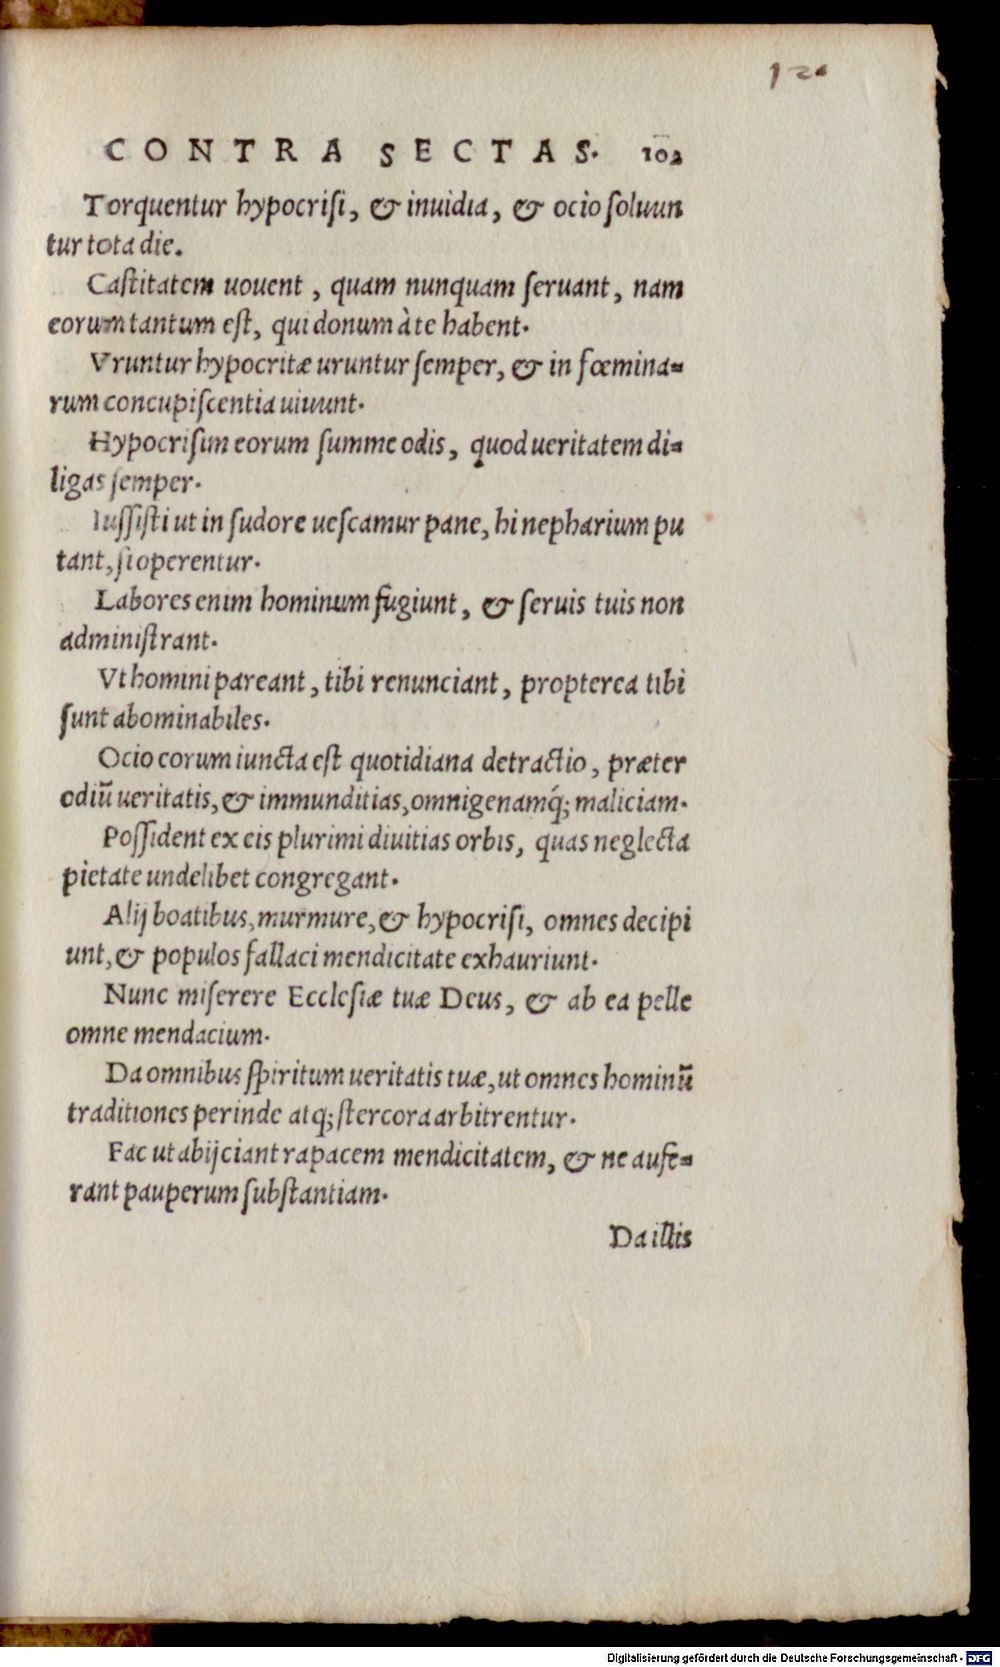 120
CONTRA SECTAS. 102
Torquentur hypocrisi, & inuidia, & ocio soluun
tur tota die.
Castitatem uouent, quam nunquam seruant, nam
eorum tantum est, qui donum à te habent.
Vruntur hypocritæ uruntur semper, & in fœmina-
rum concupiscentia uiuunt.
Hypocrisim eorum summe odis, quod ueritatem di-
ligas semper.
Iussisti ut in sudore uescamur pane, hi nepharium pu
tant, si operentur.
Labores enim hominum fugiunt, & seruis tuis non
administrant.
Vt homini pareant, tibi renunciant, propterea tibi
sunt abominabiles.
Ocio eorum iuncta est quotidiana detractio, præter
odiũ ueritatis, & immunditias, omnigenamq́; maliciam.
Possident ex eis plurimi diuitias orbis, quas neglecta
pietate undelibet congregant.
Alij boatibus, murmure, & hypocrisi, omnes decipi
unt, & populos fallaci mendicitate exhauriunt.
Nunc miserere Ecclesiæ tuæ Deus, & ab ea pelle
omne mendacium.
Da omnibus spiritum ueritatis tuæ, ut omnes hominũ
traditiones perinde atq; stercora arbitrentur.
Fac ut abijciant rapacem mendicitatem, & ne aufe-
rant pauperum substantiam.
Da illis
Digitalisierung gefördert durch die Deutsche Forschungsgemeinschaft - DFG